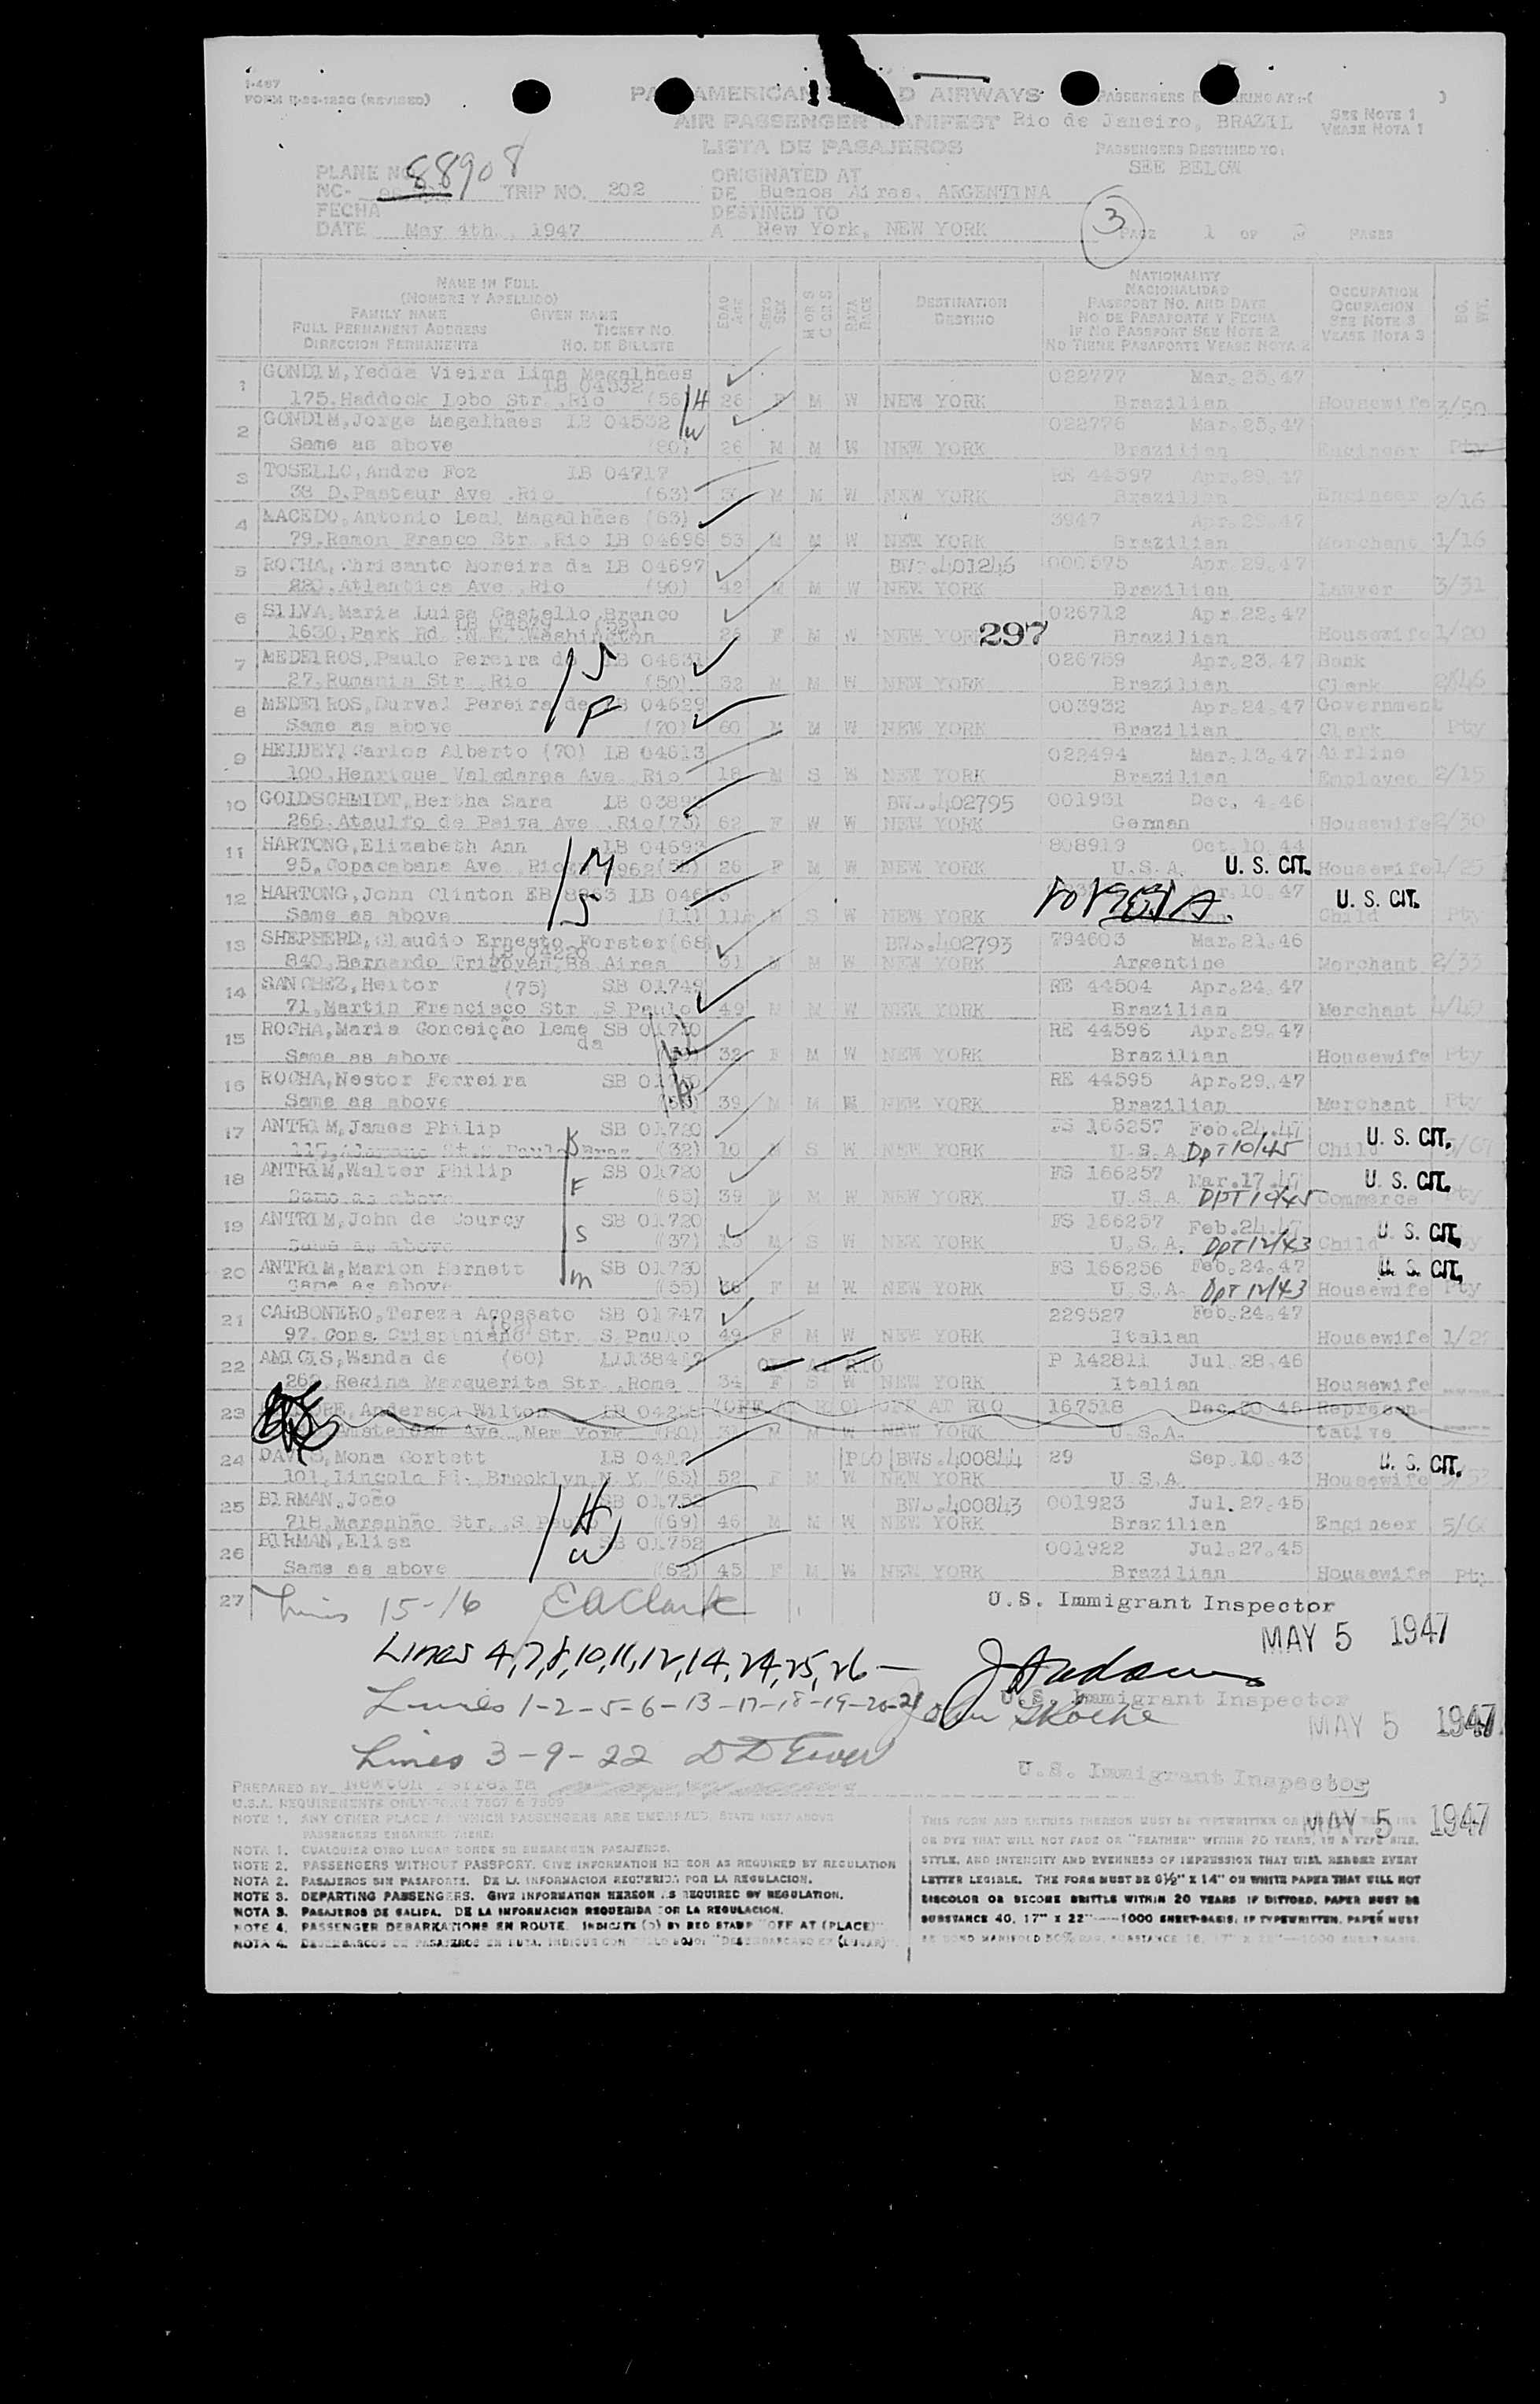 I-467
FORM (REVISED)
PAN AMERICAN AIRWAYS
AIR PASSENGER MANIFEST Rio de Janeiro, BRAZIL
LISTA DE PASAJEROS
SEE NOTE 1
VEASE NOTA 1
PASSENGERS DESTINED TO:
SEE BELOW
PLANE NO. 88908
NC- TRIP NO. 202
ORIGINATED AT
DE Buenos Aires, ARGENTINA
FECHA
DATE May 4th., 1947
DESTINED TO
A New York, NEW YORK
3 PAGE 1 OF PAGES
NAME IN FULL
(NOMBRE Y APELLIDO)
FAMILY NAME GIVEN NAME
FULL PERMANENT ADDRESS TICKET NO.
DIRECCION PERMANENTE NO. DE BILLETE
EDAD AGE
SEXO SEX
M OR S
C OR S
RAZA RACE
DESTINATION
DESTINO
NATIONALITY
NACIONALIDAD
PASSPORT NO. AND DATE
NO DE PASAPORTE Y FECHA
IF NO PASSPORT SEE NOTE 2
NO TIENE PASAPORTE VEASE NOTA 2
OCCUPATION
OCUPACION
SEE NOTE 3
VEASE NOTA 3
1 GONDIM, Yedda Vieira Lima Magalhães 022777 Mar.25.47
LB 04532
175.Haddock Lobo Str.,Rio (56) H 26 F M W NEW YORK Brazilian Housewife 3/50
2 GONDIM, Jorge Magalhães LB 04532 W 022776 Mar.25.47
Same as above (80) 26 M M W NEW YORK Brazilian Engineer Pty
3 TOSELLO, Andre Foz LB 04717 RE 44597 Apr.29.47
38 D.Pasteur Ave.,Rio (63) M M W NEW YORK Brazilian Engineer 2/16
4 MACEDO, Antonio Leal Magalhães (63) 3947 Apr.29.47
79.Ramon Franco Str.,Rio LB 04696 53 M M W NEW YORK Brazilian Merchant 1/16
5 ROCHA, Chrisanto Moreira da LB 04697 BWS.401246 000575 Apr.29.47
820.Atlantica Ave.,Rio (90) 42 M M W NEW YORK Brazilian Lawyer 3/31
6 SILVA, Maria Luisa Castello Branco 026712 Apr.22.47
1630.Park Rd. N.W. Washington 26 F M W NEW YORK 297 Brazilian Housewife 1/20
7 MEDEIROS, Paulo Pereira de LB 04631 S 026759 Apr.23.47 Bank
27.Rumania Str.,Rio (50) 32 M M W NEW YORK Brazilian Clerk 2/46
8 MEDEIROS, Durval Pereira de LB 04629 F 003932 Apr.24.47 Government
Same as above (70) 60 M M W NEW YORK Brazilian Clerk Pty
9 Carlos Alberto (70) LB 04613 022494 Mar.13.47 Airline
100.Henrique Valadares Ave.,Rio 18 M S W NEW YORK Brazilian Employee 2/15
10 GOLDSCHMIDT, Bertha Sara BWS.402795 001931 Dec. 4.46
266.Ataulfo de Paiva Ave.,Rio(75) 62 F W W NEW YORK German Housewife 2/30
11 HARTONG, Elizabeth Ann LB 04693 M 808919 Oct.10.44
95.Copacabana Ave.,Rio 26 F M W NEW YORK U.S.A. U. S. CIT. Housewife 1/25
12 HARTONG, John Clinton S Apr.10.47 U. S. CIT.
Same as above (11) M S W NEW YORK Child Pty
13 SHEPHERD, Claudio Ernesto Forster(68) BWS.402793 794603 Mar.21.46
840.Bernardo Bs Aires 31 M M W NEW YORK Argentine Merchant 2/33
14 SANCHEZ, Heitor (75) SB 01749 RE 44504 Apr.24.47
71.Martin Francisco Str.,S Paulo 49 M M W NEW YORK Brazilian Merchant 4/49
15 ROCHA, Maria Conceição Leme da SB 01750 W RE 44596 Apr.29.47
Same as above 32 F M W NEW YORK Brazilian Housewife Pty
16 ROCHA, Nestor Ferreira SB 01750 H RE 44595 Apr.29.47
Same as above 39 M M W NEW YORK Brazilian Merchant Pty
17 ANTRIM, James Philip SB 01720 FS 166257 Feb.24.47 U. S. CIT.
S. Paulo Bras. (32) 10 M S W NEW YORK U.S.A. DPT 10/45 Child
18 ANTRIM, Walter Philip F SB 01720 FS 166257 Mar.17.47 U. S. CIT.
Same as above (65) 39 M M W NEW YORK U.S.A. DPT 10/45 Commerce Pty
19 ANTRIM, John de Courcy S SB 01720 FS 166257 Feb.24.47 U. S. CIT.
Same as above (37) 13 M S W NEW YORK U.S.A. DPT 12/43 Child Pty
20 ANTRIM, Marion Harnett M SB 01720 FS 166256 Feb.24.47 U. S. CIT.
Same as above (55) 36 F M W NEW YORK U.S.A. DPT 12/43 Housewife Pty
21 CARBONERO, Tereza Agossato SB 01747 229527 Feb.24.47
97.Cons.Crispiniano Str. S.Paulo 49 F M W NEW YORK Italian Housewife
22 AMICIS, Wanda de (60) OFF AT RIO P 142811 Jul.28.46
262.Regina Marguerita Str.,Rome 34 F S W NEW YORK Italian Housewife
23 Anderson Wilton (OFF AT RIO) OFF AT RIO 167518 Dec.30.46 Represen-
Amsterdam Ave.,New York (80) M M W NEW YORK U.S.A. tative
24 DAVIS, Mona Corbett BWS.400844 29 Sep.10.43 U. S. CIT.
101.Lincoln Rd. Brooklyn N.Y. (65) 52 F M W NEW YORK U.S.A. Housewife
25 BIRMAN, João H SB 01752 BWS.400843 001923 Jul.27.45
718.Maranhão Str.,S Paulo (69) 46 M M W NEW YORK Brazilian Engineer
26 BIRMAN, Elisa W SB 01752 001922 Jul.27.45
Same as above (62) 45 F M W NEW YORK Brazilian Housewife Pty
27 Lines 15-16 E A Clark U.S. Immigrant Inspector
MAY 5 1947
Lines 4,7,8,10,11,12,14,24,25,26 —
Lines 1-2-5-6-13-17-18-19-20-21 U.S. Immigrant Inspector
MAY 5 1947
Lines 3-9-22
U.S. Immigrant Inspector
MAY 5 1947
PREPARED BY Newton Ferreira
U.S.A. REQUIREMENTS ONLY
NOTE 1. ANY OTHER PLACE AT WHICH PASSENGERS ARE EMBARKED, STATE NEXT ABOVE
PASSENGERS EMBARKED THERE.
NOTA 1. CUALQUIER OTRO LUGAR DONDE SE EMBARQUEN PASAJEROS.
NOTE 2. PASSENGERS WITHOUT PASSPORT. GIVE INFORMATION HEREON AS REQUIRED BY REGULATION
NOTA 2. PASAJEROS SIN PASAPORTE. DE LA INFORMACION REQUERIDA POR LA REGULACION.
NOTE 3. DEPARTING PASSENGERS. GIVE INFORMATION HEREON AS REQUIRED BY REGULATION.
NOTA 3. PASAJEROS DE SALIDA. DE LA INFORMACION REQUERIDA POR LA REGULACION.
NOTE 4. PASSENGER DEBARKATIONS EN ROUTE. INDICATE (D) BY RED STAMP "OFF AT (PLACE)".
NOTA 4. DESEMBARCOS DE PASAJEROS EN RUTA. INDIQUE CON SELLO ROJO: "DESEMBARCADO EN (LUGAR)".
THIS FORM AND ENTRIES THEREON MUST BE TYPEWRITTEN OR
OR DYE THAT WILL NOT FADE OR "FEATHER" WITHIN 20 YEARS, IN A TYPE SIZE,
STYLE, AND INTENSITY AND EVENNESS OF IMPRESSION THAT WILL RENDER EVERY
LETTER LEGIBLE. THE FORM MUST BE 8½" X 14" ON WHITE PAPER THAT WILL NOT
DISCOLOR OR BECOME BRITTLE WITHIN 20 YEARS IF DITTOED, PAPER MUST BE
SUBSTANCE 40, 17" X 22"—1000 SHEET-BASIS; IF TYPEWRITTEN, PAPER MUST
BE BOND MANIFOLD 50% RAG, SUBSTANCE 16, 17" X 22"—1000 SHEET-BASIS.